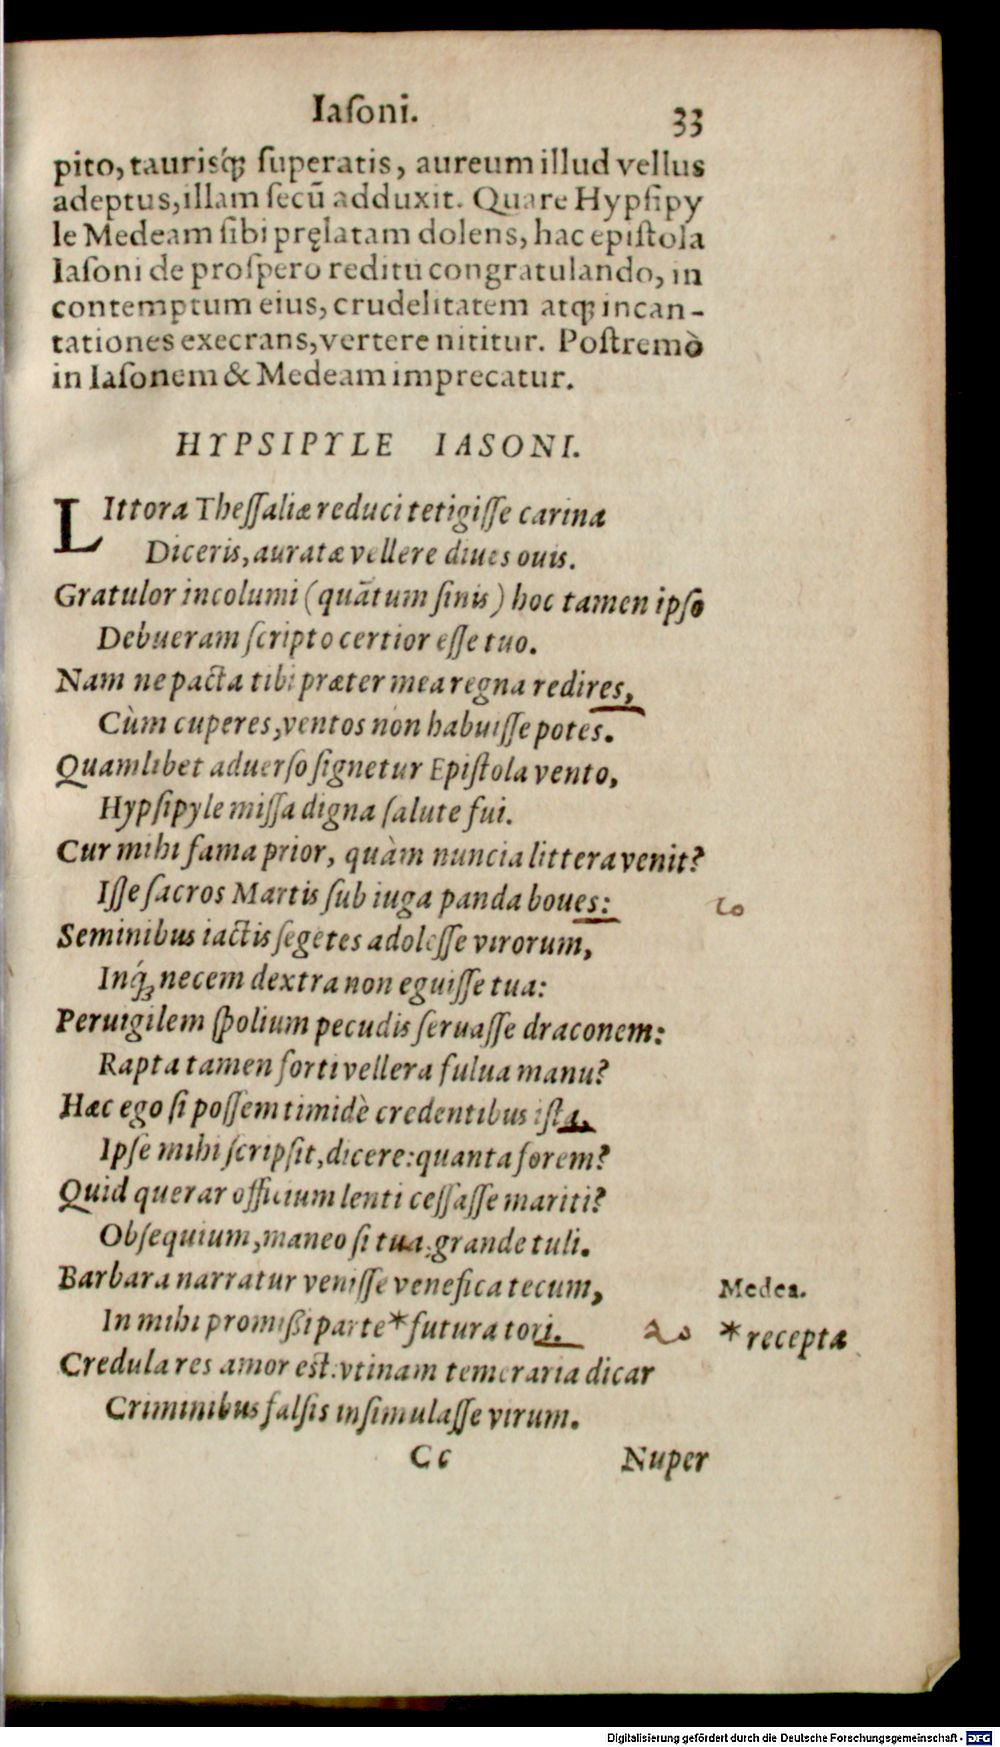 Iaſoni. 33
pito, tauriſq́; ſuperatis, aureum illud vellus
adeptus, illam ſecū adduxit. Quare Hypſipy
le Medeam ſibi pręlatam dolens, hac epiſtola
Iaſoni de proſpero reditu congratulando, in
contemptum eius, crudelitatem atq; incan-
tationes execrans, vertere nititur. Poſtremò
in Iaſonem & Medeam imprecatur.
HYPSIPYLE IASONI.
LIttora Theſſaliæ reduci tetigiſſe carina
Diceris, auratæ vellere diues ouis.
Gratulor incolumi (quātum ſinis) hoc tamen ipſo
Debueram ſcripto certior eſſe tuo.
Nam ne pacta tibi præter mea regna redires,
Cùm cuperes, ventos non habuiſſe potes.
Quamlibet aduerſo ſignetur Epiſtola vento,
Hypſipyle miſſa digna ſalute fui.
Cur mihi fama prior, quàm nuncia littera venit?
Iſſe ſacros Martis ſub iuga panda boues:
Seminibus iactis ſegetes adoleſſe virorum,
Inq́; necem dextra non eguiſſe tua:
Peruigilem ſpolium pecudis ſeruaſſe draconem:
Rapta tamen forti vellera fulua manu?
Hæc ego ſi poſſem timidè credentibus iſta,
Ipſe mihi ſcripſit, dicere: quanta forem?
Quid querar officium lenti ceſſaſſe mariti?
Obſequium, maneo ſi tua, grande tuli.
Barbara narratur veniſſe venefica tecum, Medea.
In mihi promißi parte *futura tori. 20 *recepta
Credula res amor eſt: vtinam temeraria dicar
Criminibus falſis inſimulaſſe virum.
Cc Nuper
Digitalisierung gefördert durch die Deutsche Forschungsgemeinschaft - DFG